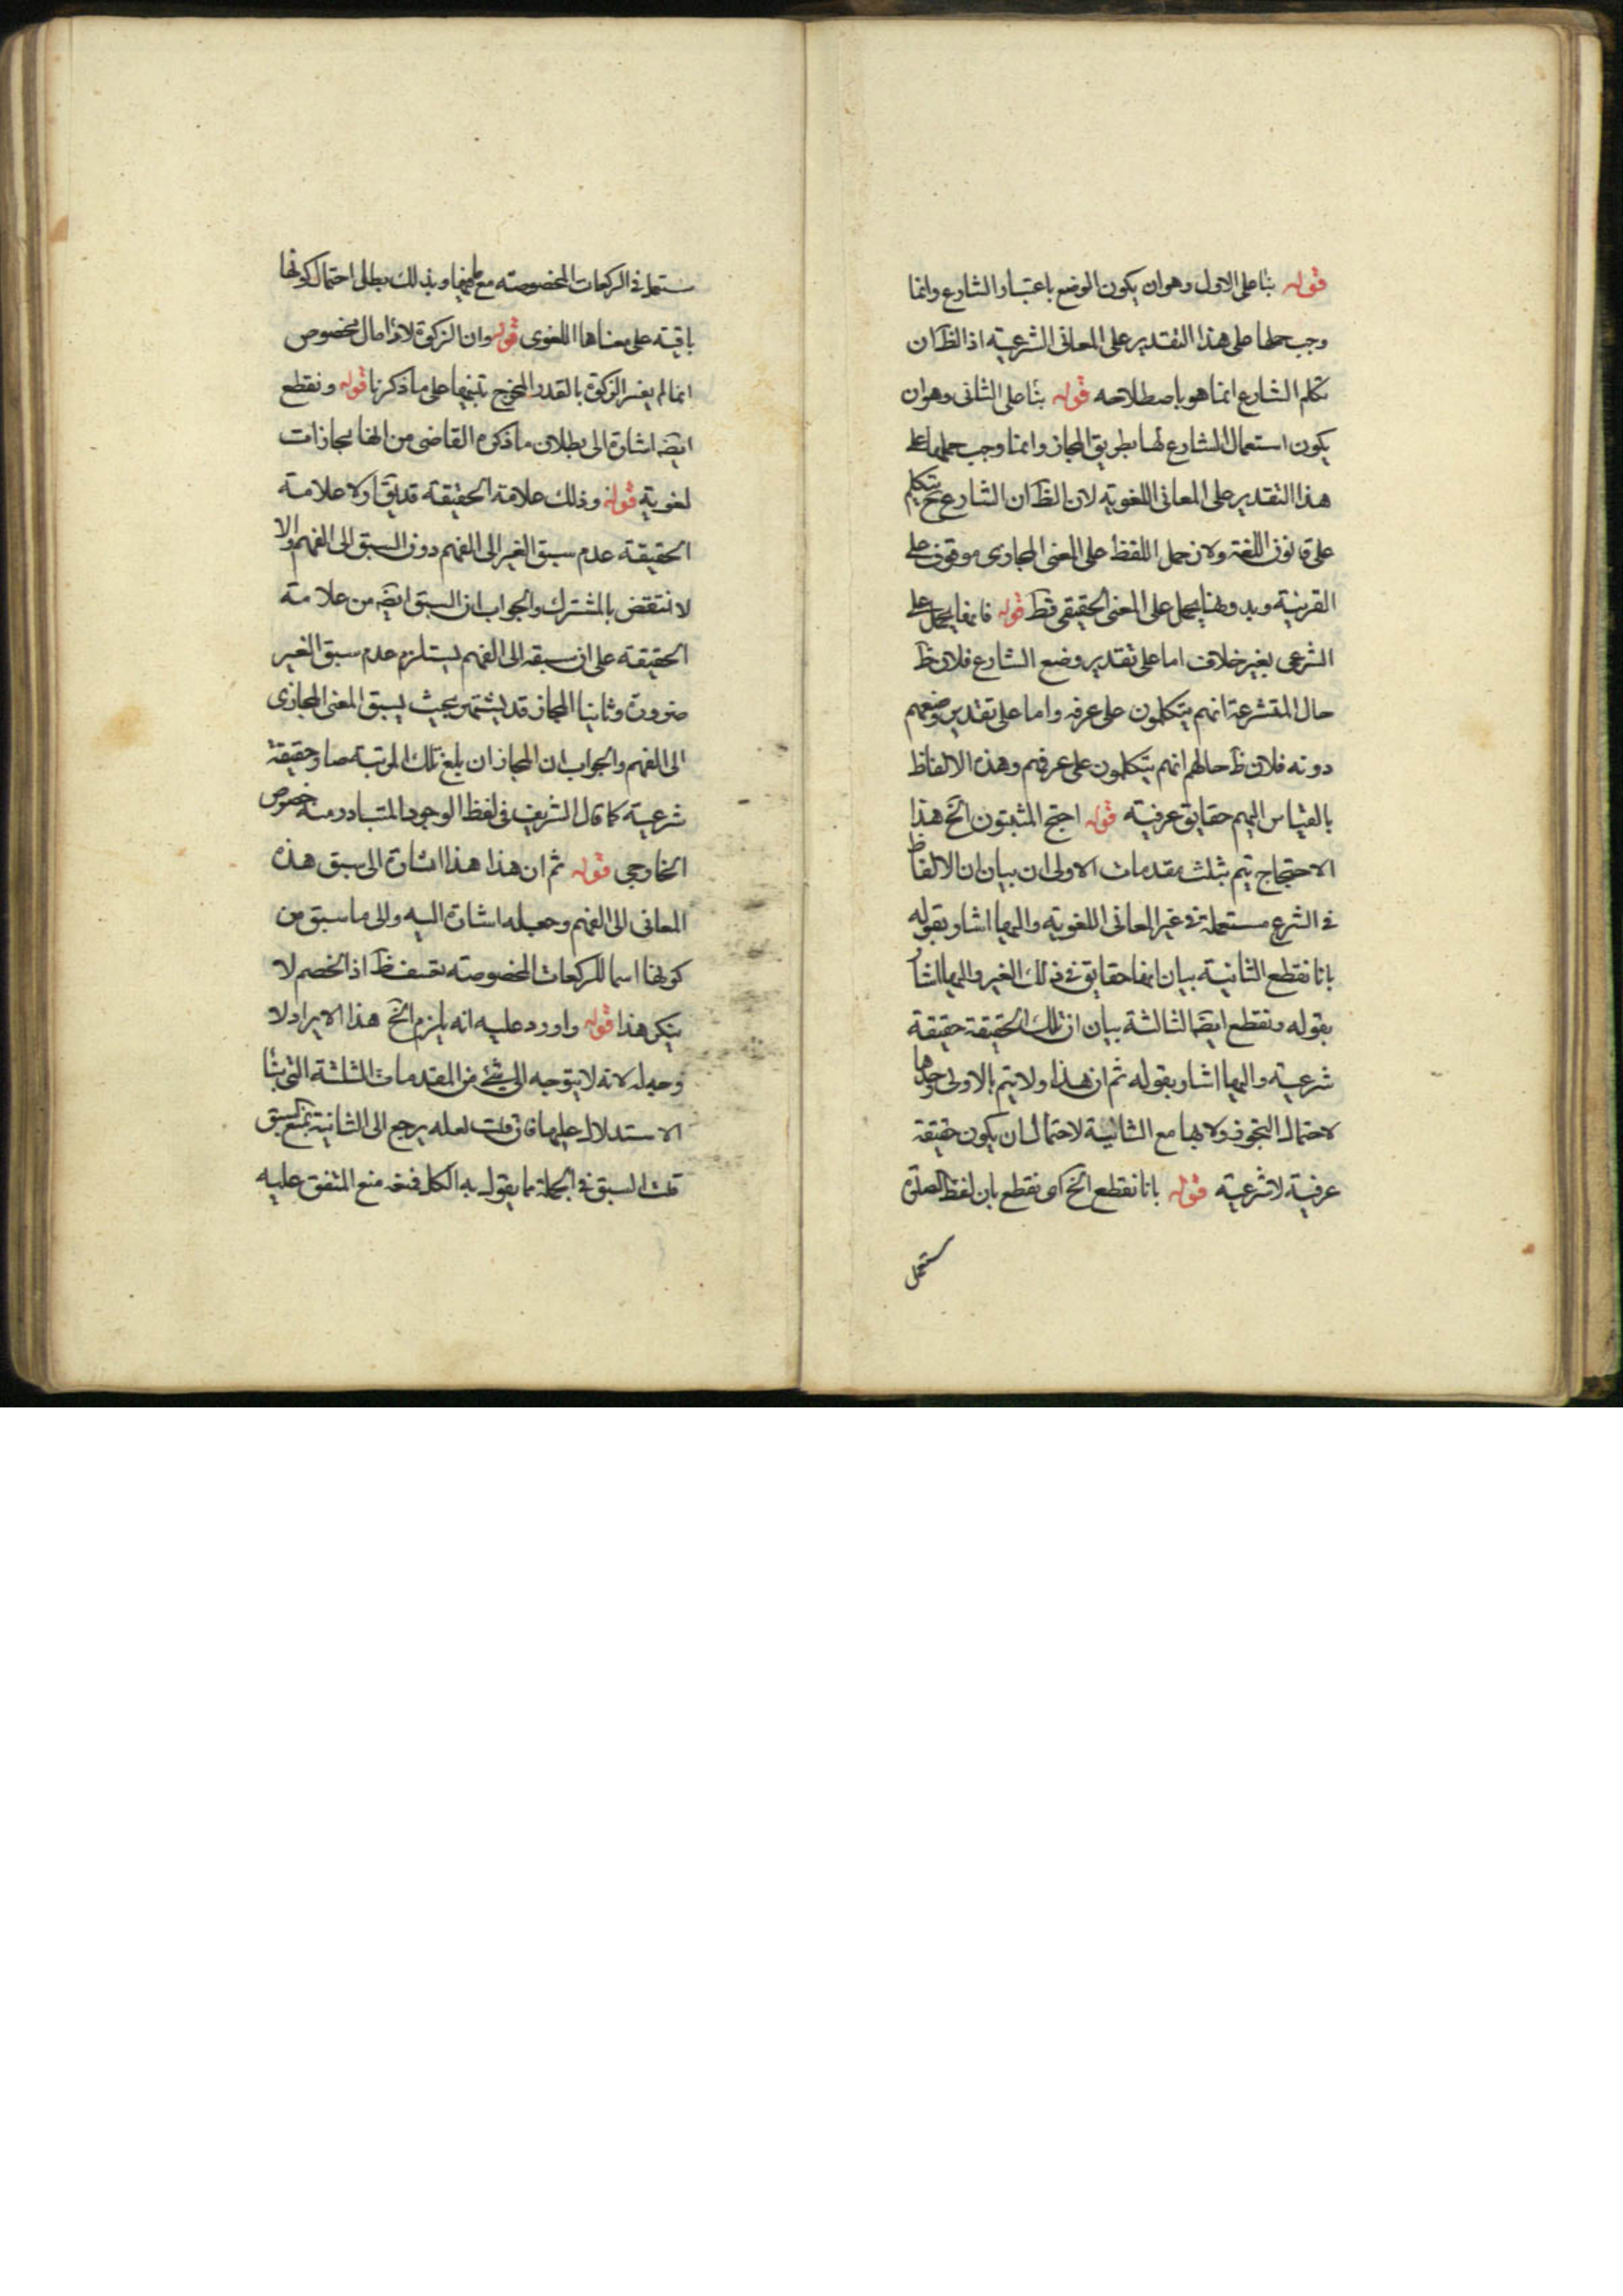 قوله بناء على الاول وهو ان يكون الوضع باعتبار الشارع وانما
وجب حملها على هذا التقدير على المعانى الشرعية اذ الظ ان
تكلم الشارع انما هو باصطلاحه قوله بناء على الثانى وهو ان
يكون استعمال الشارع لها بطريق المجاز وانما وجب حملها على
هذا التقدير على المعانى اللغوية لان الظ ان الشارع ح يتكلم
على قانون اللغة ولان حمل اللفظ على المعنى المجازى موقوف على
القرينة وبدونها يحمل على المعنى الحقيقى فقط قوله فانها يحمل على
الشرعى بغير خلاف اما على تقدير وضع الشارع فلان ظ
حال المتشرعة انهم يتكلمون على عرفه واما على تقدير وضعهم
دونه فلان ظ حالهم انهم يتكلمون على عرفهم وهذه الالفاظ
بالقياس اليهم حقايق عرفية قوله احتج المثبتون الخ هذا
الاحتجاج يتم بثلث مقدمات الاولى ان بيان ان الالفاظ
فى الشرع مستعملة فى غير المعانى اللغوية واليها اشار بقوله
بانا نقطع الثانية بيان انها حقايق فى ذلك الغير واليها اشار
بقوله ونقطع ايضا الثالثة بيان ان تلك الحقيقة حقيقة
شرعية واليها اشار بقوله ثم ان هذا ولا يتم بالاولى وحدها
لاحتمال التجوز ولا بها مع الثانية لاحتمال ان يكون حقيقة
عرفية لا شرعية قوله بانا نقطع الخ اى نقطع بان لفظ الصلوة
ستعمل
ستعمل فى الركعات المخصوصة مع ما فيها وبذلك بطل احتمال كونها
باقية على معناها اللغوى قوله وان الزكوة لاداء مال مخصوص
انما لم يفسر الزكوة بالقدر المخرج تنبيها على ما ذكرنا قوله ونقطع
ايضا اشارة الى بطلان ما ذكره القاضى من انها مجازات
لغوية قوله وذلك علامة الحقيقة قد يق اولا علامة
الحقيقة عدم سبق الغير الى الفهم دون السبق الى الفهم والا
لانتقض بالمشترك والجواب ان السبق ايضا من علامة
الحقيقة على ان سبقه الى الفهم يستلزم عدم سبق الغير
ضرورة وثانيا المجاز قد يشتهر بحيث يسبق المعنى المجازى
الى الفهم والجواب ان المجاز ان بلغ تلك المرتبة صار حقيقة
شرعية كما قال الشريف فى لفظ الوجود المتبادر منه خصوص
الخارجى قوله ثم ان هذا هذا اشارة الى سبق هذه
المعانى الى الفهم وجعله اشارة اليه والى ما سبق من
كونها اسما للركعات المخصوصة تعسف ظ اذ الخصم لا
ينكر هذا قوله واورد عليه انه يلزم الخ هذا الايراد لا
وجه له لانه لا يتوجه الى شئ من المقدمات الثلثة التى بناء
الاستدلال عليها فان قلت لعله يرجع الى الثانية بمنع سبق
قلت السبق فى الجملة مما يقول به الكل فمنعه منع المتفق عليه